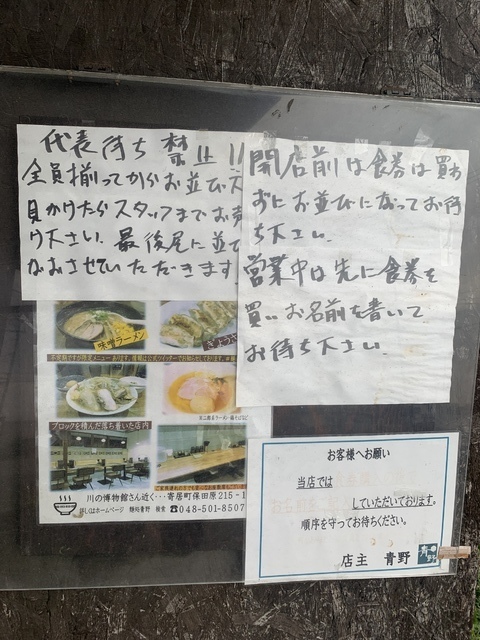 代表待ち 禁止!!
全員揃ってからお並び
見かけたらスタッフまでお
け下さい。最後尾に並
なおさせていただきます
開店前は食券は買わ
ずにお並びになってお待
ち下さい。
営業中は先に食券を
買い、お名前を書いて
お待ち下さい。
味噌ラーメン
ぎょうざ
ブロックを積んだ落ち着いた店内
川の博物館さん近く・・・寄居町保田原215-1
詳しはホームページ 麺処青野 検索 ☎048-501-8507
お客様へお願い
当店では
していただいております。
順序を守ってお待ちください。
店主 青野